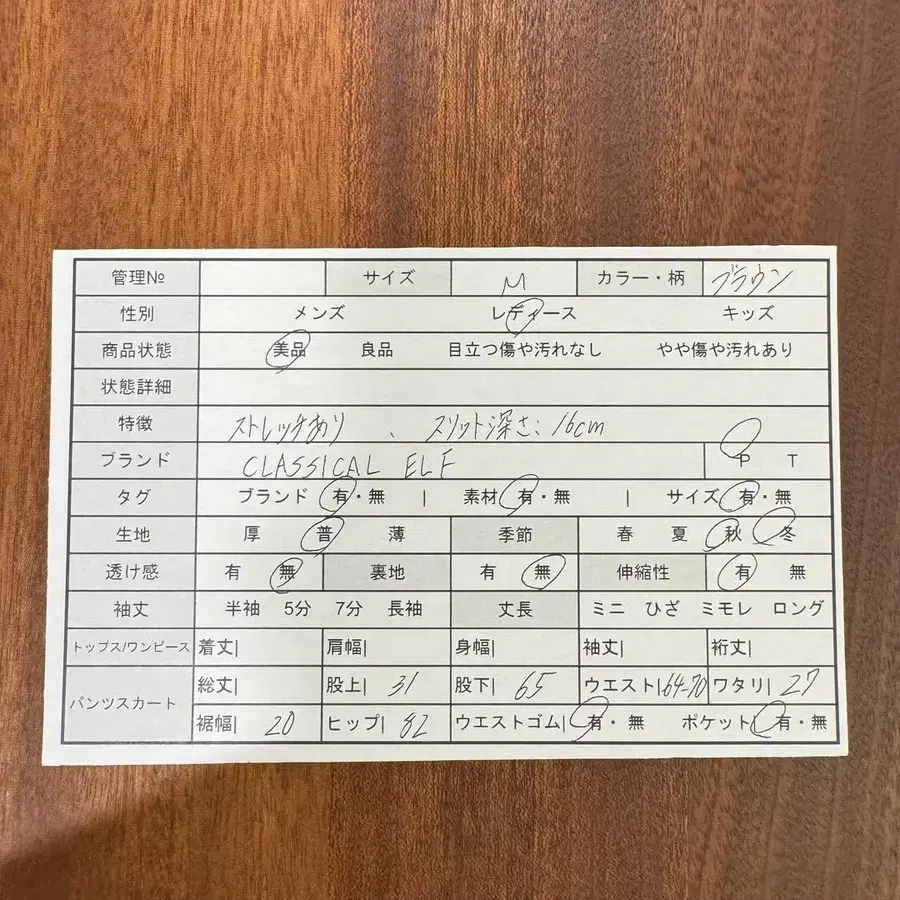 管理№ サイズ M カラー・柄 ブラウン
性別 メンズ レディース キッズ
商品状態 美品 良品 目立つ傷や汚れなし やや傷や汚れあり
状態詳細
特徴 ストレッチあり 、 スリット深さ:16cm
ブランド CLASSICAL ELF P T
タグ ブランド 有・無 | 素材 有・無 | サイズ 有・無
生地 厚 普 薄 季節 春 夏 秋 冬
透け感 有 無 裏地 有 無 伸縮性 有 無
袖丈 半袖 5分 7分 長袖 丈長 ミニ ひざ ミモレ ロング
トップス/ワンピース 着丈| 肩幅| 身幅| 袖丈| 裄丈|
パンツスカート 総丈| 股上| 31 股下| 65 ウエスト| 64-70 ワタリ| 27
裾幅| 20 ヒップ| 82 ウエストゴム| 有・無 ポケット| 有・無